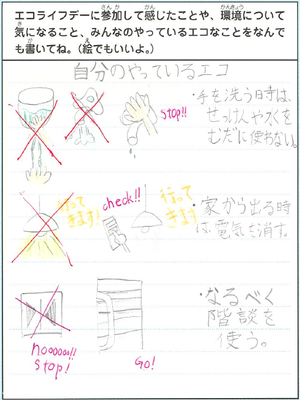 エコライフデーに参加して感じたことや、環境について
気になること、みんなのやっているエコなことをなんで
も書いてね。（絵でもいいよ。）
自分のやっているエコ
stop!!
・手を洗う時は、
せっけんや水を
むだに使わない。
行って
きます!
check!!
行って
きます
・家から出る時
は、電気を消す。
・なるべく
階談を
使う。
nooooo!!
stop!
GO!